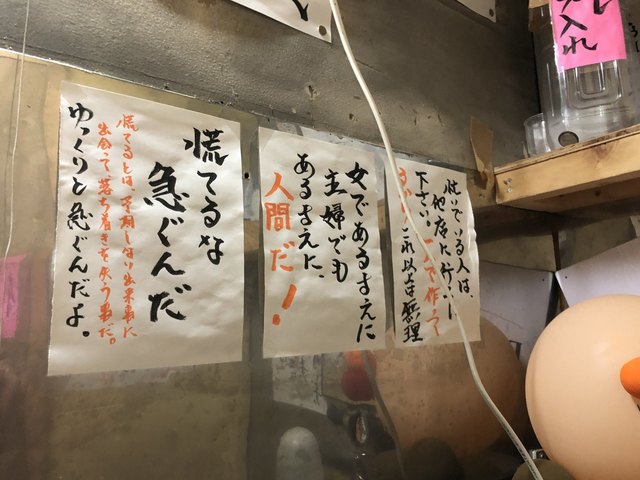 入れ
急いでいる人は、
他店に行って
下さい。一人で作って
これ以上は無理
女であるまえに
主婦でも
あるまえに、
人間だ!
慌てるな
急ぐんだ
慌てるとは、予期しない出来事に
出会って落ち着きを失う事だ。
ゆっくりと急ぐんだよ。